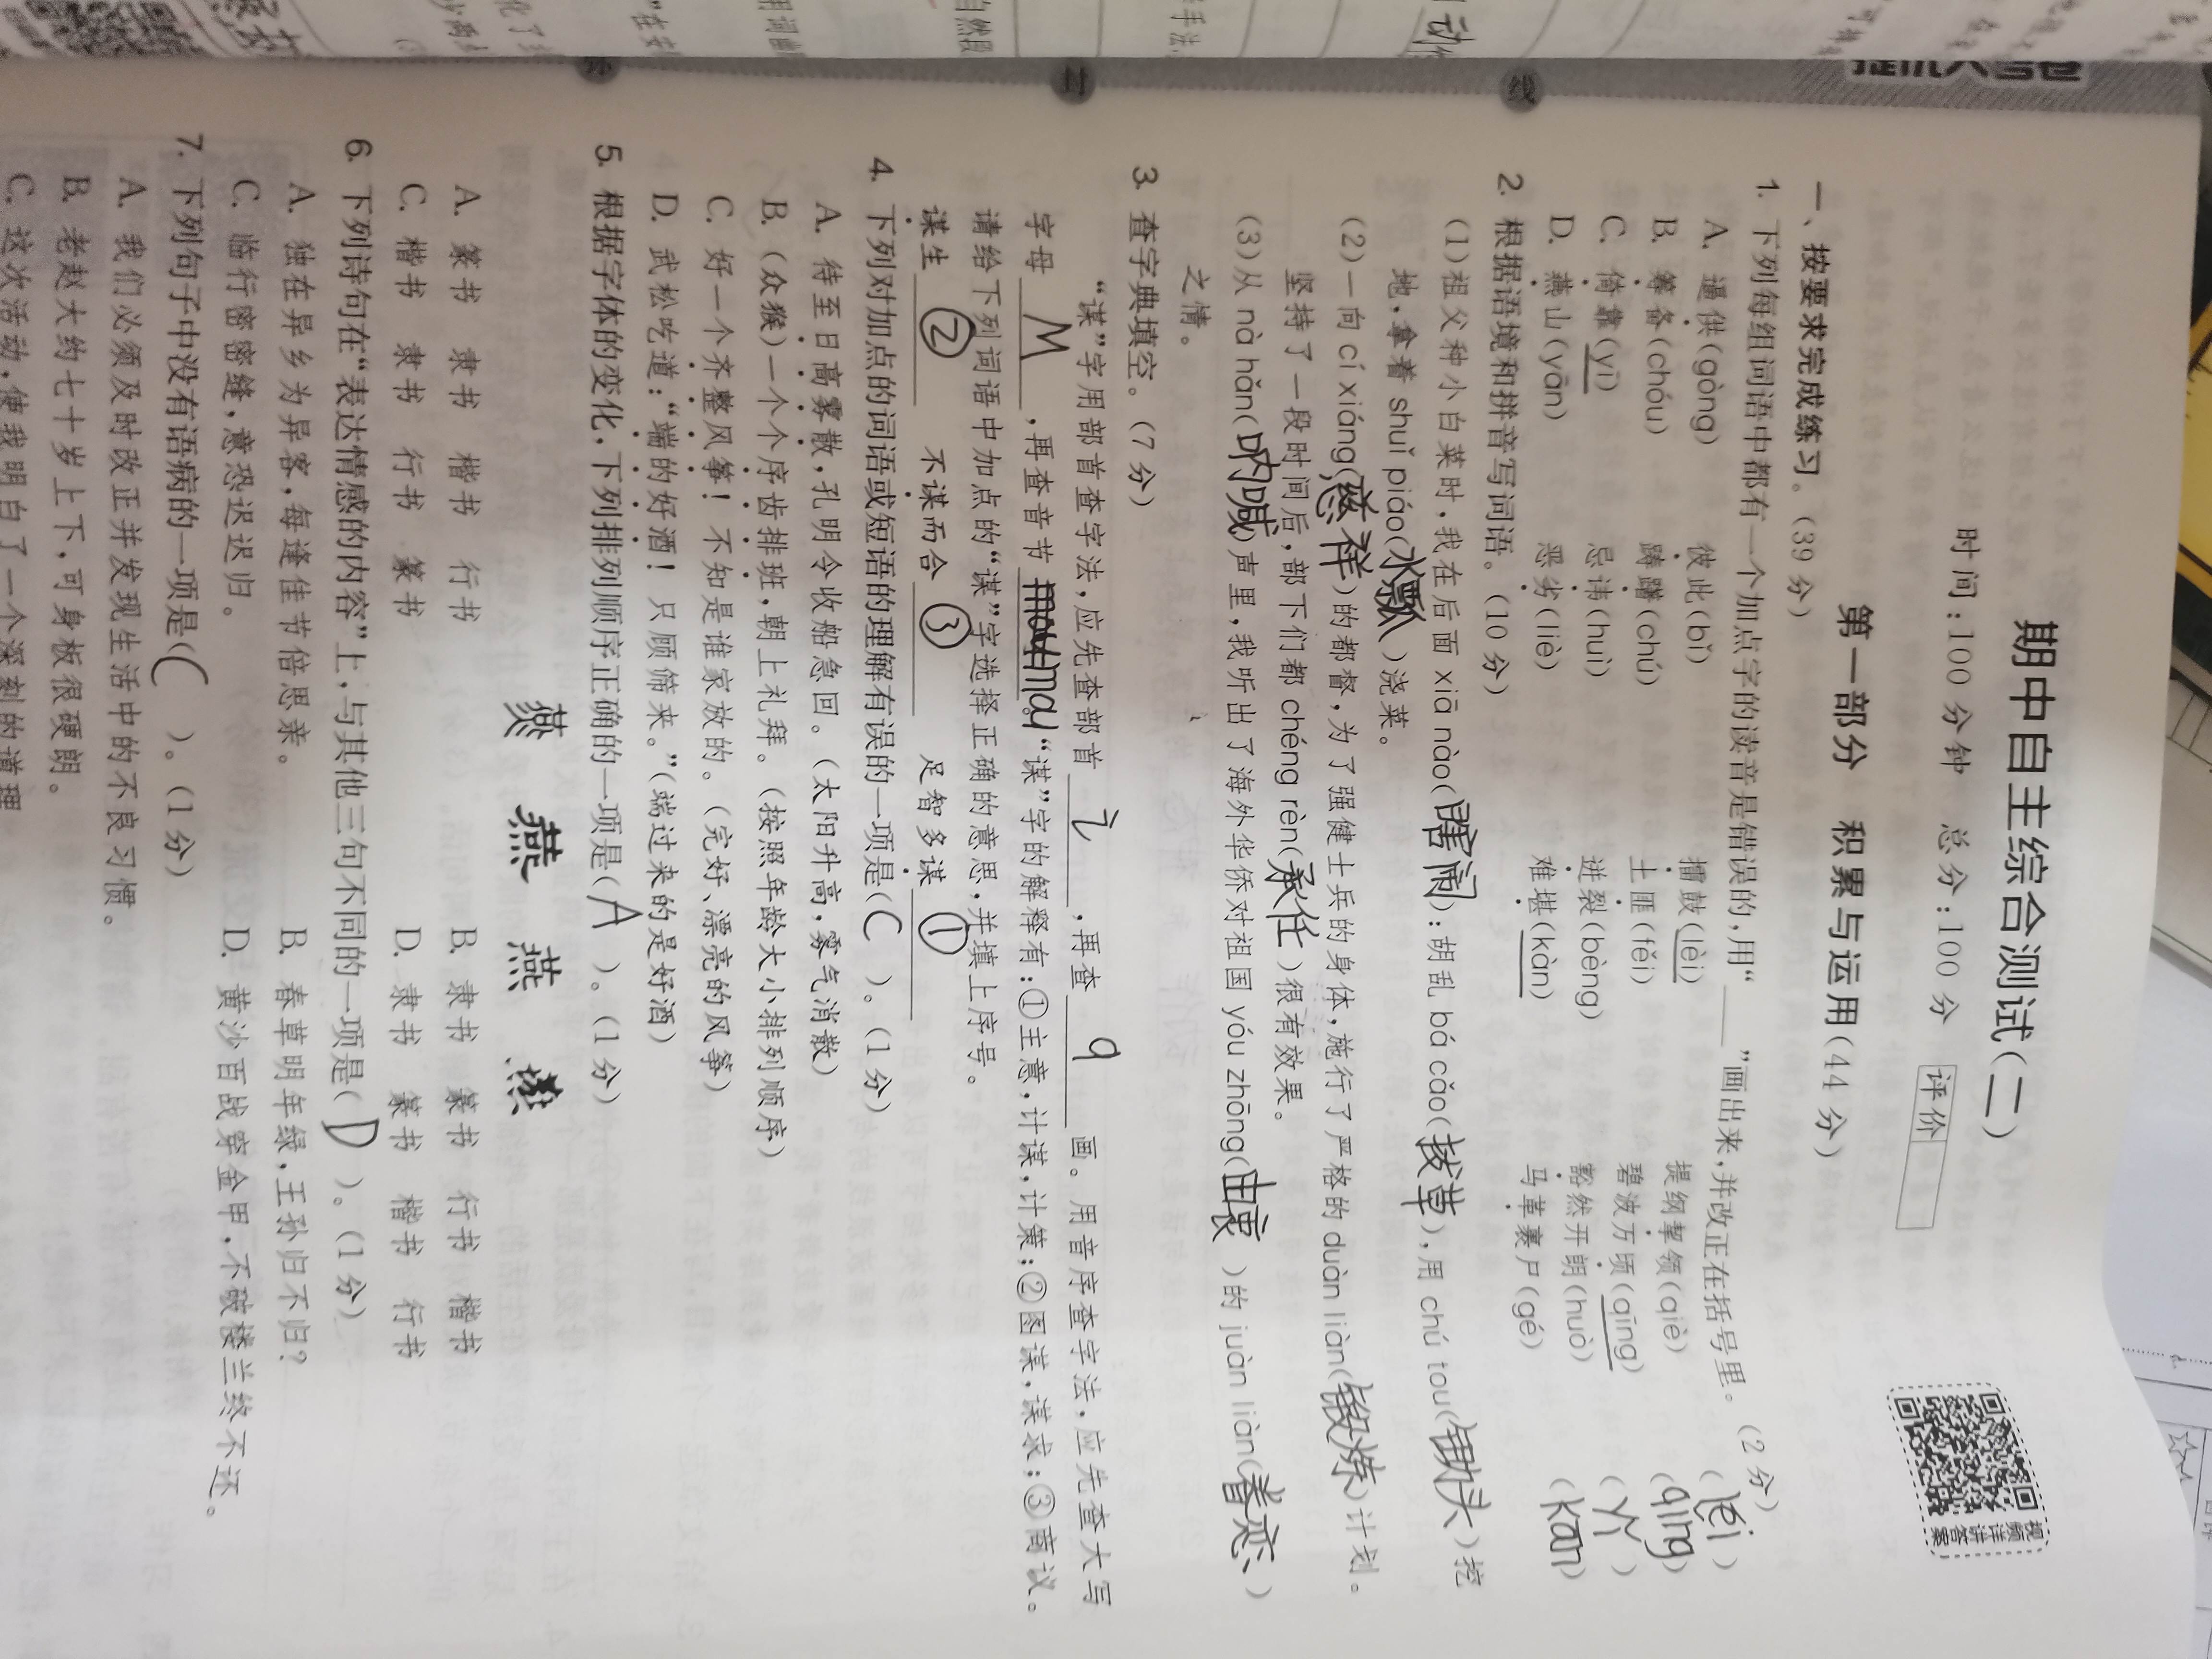 期中自主综合测试(二)
时间:100分钟 总分:100分 评价
视频讲解答案
第一部分 积累与运用(44分)
一、按要求完成练习。(39分)
1. 下列每组词语中都有一个加点字的读音是错误的,用“____”画出来,并改正在括号里。(2分)
A. 逼供(gòng) 彼此(bǐ) 擂鼓(lèi) 提纲挈领(qiè) (léi)
B. 筹备(chóu) 踌躇(chú) 土匪(fěi) 碧波万顷(qīng) (qing)
C. 倚靠(yī) 忌讳(huì) 迸裂(bèng) 豁然开朗(huò) (yǐ)
D. 燕山(yān) 恶劣(liè) 难堪(kàn) 马革裹尸(gé) (kan)
2. 根据语境和拼音写词语。(10分)
(1)祖父种小白菜时,我在后面 xiā nào(瞎闹):胡乱 bá cǎo(拔草),用 chú tou(锄头)挖
地,拿着 shuǐ piáo(水瓢)浇菜。
(2)一向 cí xiáng(慈祥)的都督,为了强健士兵的身体,施行了严格的 duàn liàn(锻炼)计划。
坚持了一段时间后,部下们都 chéng rèn(承任)很有效果。
(3)从 nà hǎn(呐喊)声里,我听出了海外华侨对祖国 yóu zhōng(由衷)的 juàn liàn(眷恋)
之情。
3. 查字典填空。(7分)
“谋”字用部首查字法,应先查部首 讠 ,再查 9 画。用音序查字法,应先查大写
字母 M ,再查音节 mou “谋”字的解释有:①主意,计谋,计策;②图谋,谋求;③商议。
请给下列词语中加点的“谋”字选择正确的意思,并填上序号。
谋生 ② 不谋而合 ③ 足智多谋 ①
4. 下列对加点的词语或短语的理解有误的一项是(C)。(1分)
A. 待至日高雾散,孔明令收船急回。(太阳升高,雾气消散)
B. (众猴)一个个序齿排班,朝上礼拜。(按照年龄大小排列顺序)
C. 好一个齐整风筝!不知是谁家放的。(完好、漂亮的风筝)
D. 武松吃道:“端的好酒!只顾筛来。”(端过来的是好酒)
5. 根据字体的变化,下列排列顺序正确的一项是(A)。(1分)
燕 燕 燕 燕
A. 篆书 隶书 楷书 行书 B. 隶书 篆书 行书 楷书
C. 楷书 隶书 行书 篆书 D. 隶书 篆书 楷书 行书
6. 下列诗句在“表达情感的内容”上,与其他三句不同的一项是(D)。(1分)
A. 独在异乡为异客,每逢佳节倍思亲。 B. 春草明年绿,王孙归不归?
C. 临行密密缝,意恐迟迟归。 D. 黄沙百战穿金甲,不破楼兰终不还。
7. 下列句子中没有语病的一项是(C)。(1分)
A. 我们必须及时改正并发现生活中的不良习惯。
B. 老赵大约七十岁上下,可身板很硬朗。
C. 这次活动,使我明白了一个深刻的道理
线
封